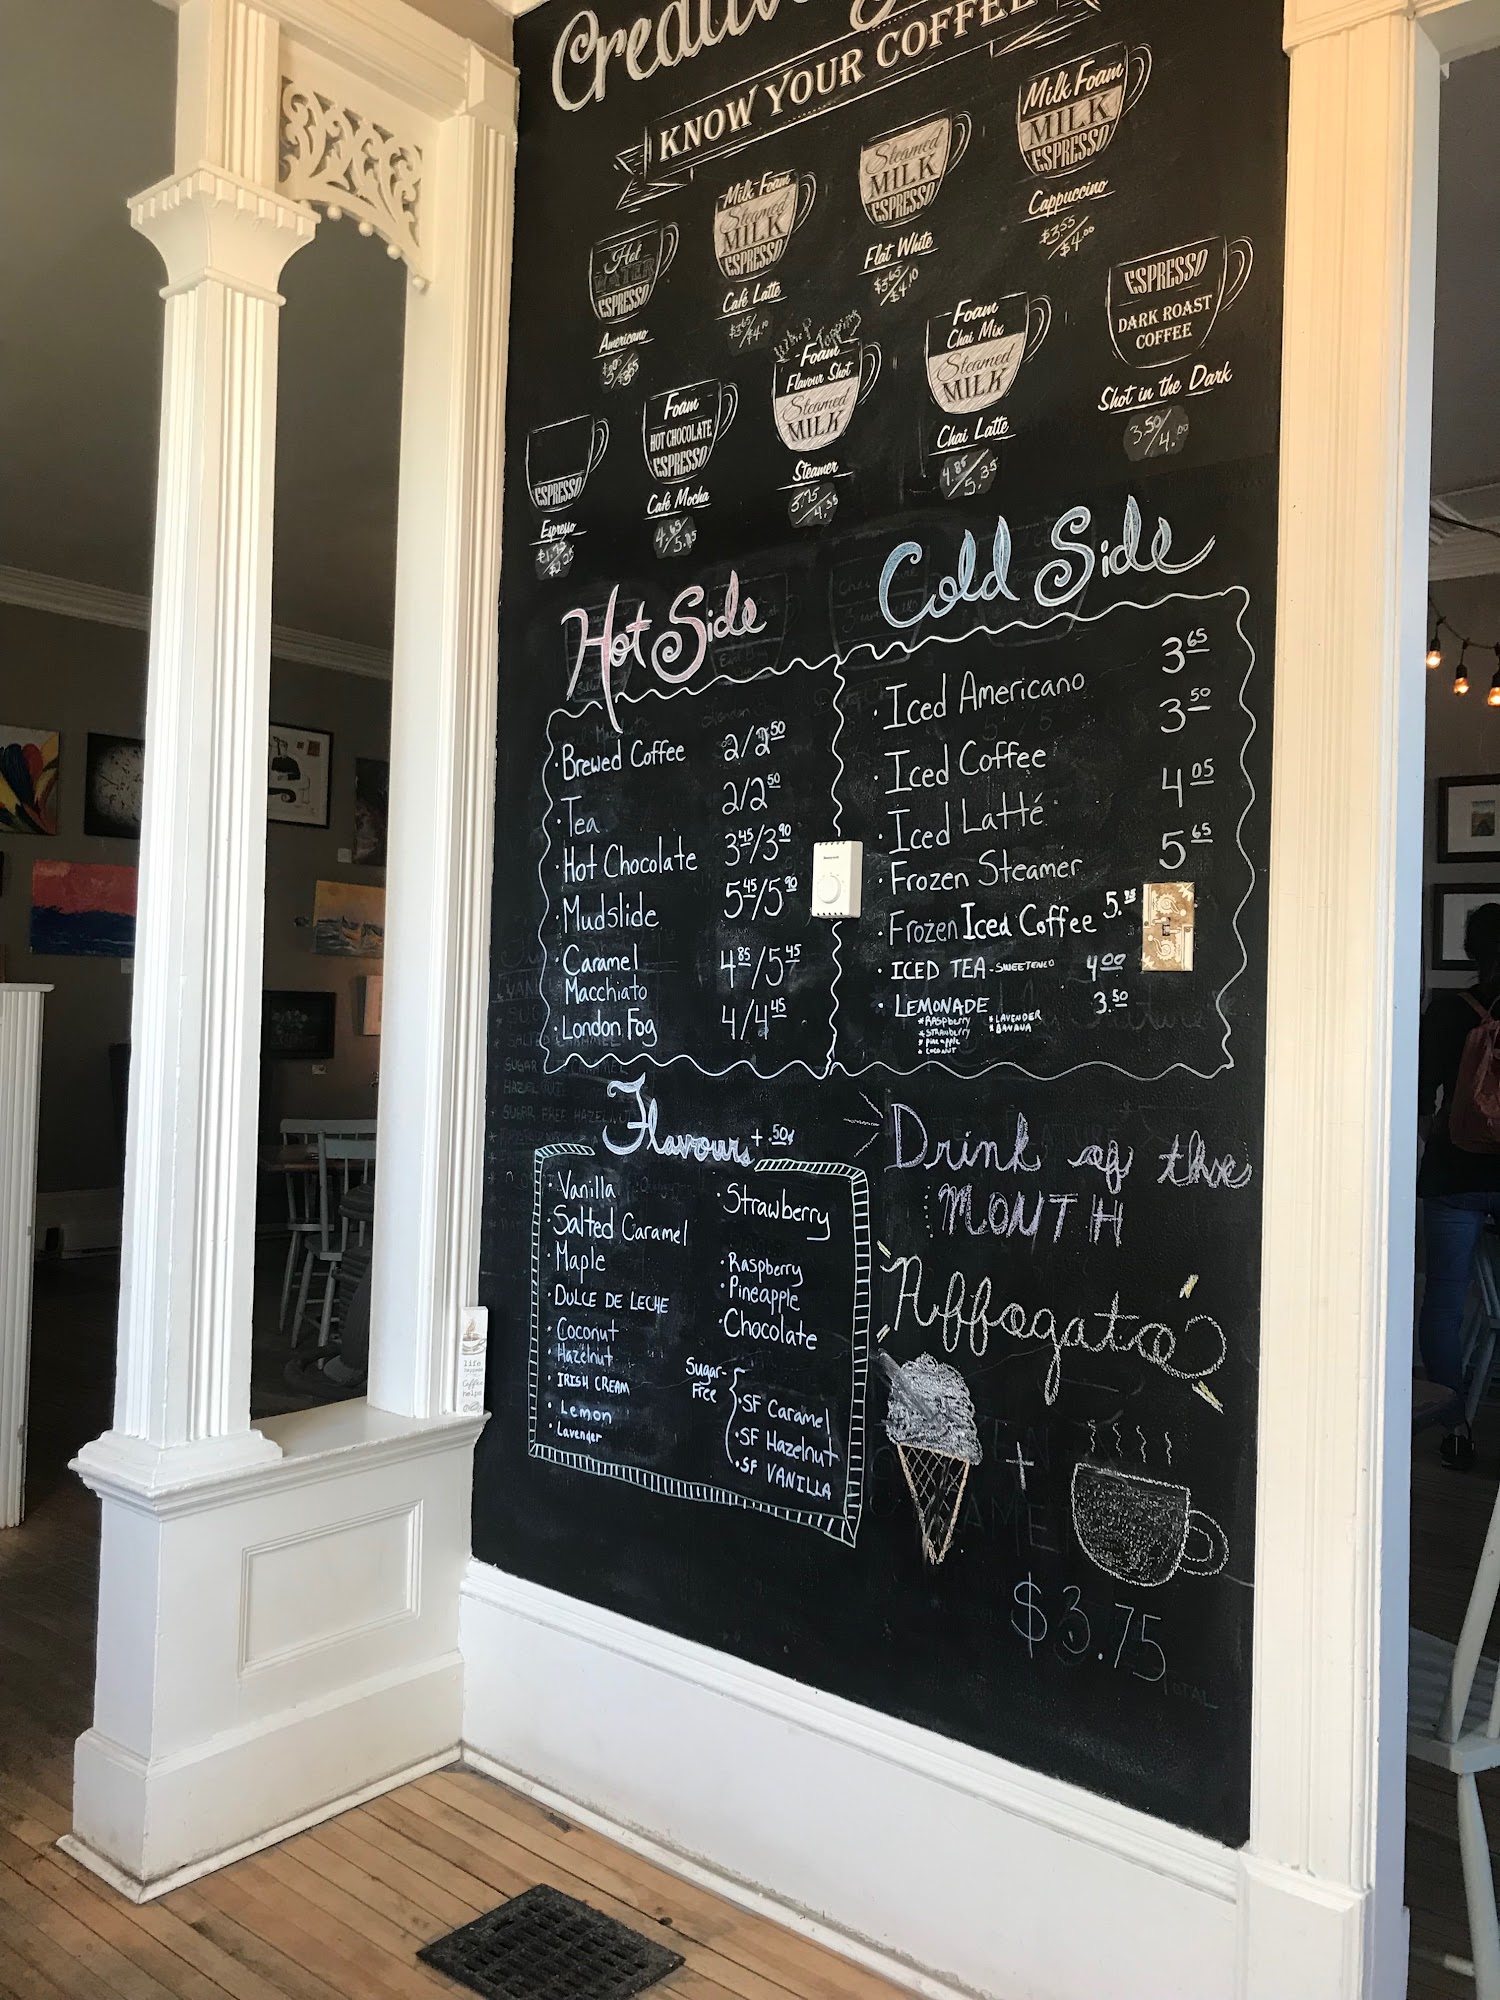 KNOW YOUR COFFEE
Milk Foam
MILK
ESPRESSO
Cappuccino
$3.55/$4.00
Steamed
MILK
ESPRESSO
Flat White
$3.65/$4.10
Milk Foam
Steamed
MILK
ESPRESSO
Café Latte
$3.65/$4.10
Hot
WATER
ESPRESSO
Americano
ESPRESSO
DARK ROAST
COFFEE
Shot in the Dark
3.50/4.00
Foam
Chai Mix
Steamed
MILK
Chai Latte
4.85/5.35
Foam
Flavour Shot
Steamed
MILK
Steamer
Foam
HOT CHOCOLATE
ESPRESSO
Café Mocha
ESPRESSO
Espresso
Hot Side
· Brewed Coffee 2/2.50
· Tea 2/2.50
· Hot Chocolate 3.45/3.90
· Mudslide 5.45/5.90
· Caramel
Macchiato 4.85/5.45
· London Fog 4/4.45
Cold Side
· Iced Americano 3.65
· Iced Coffee 3.50
· Iced Latté 4.05
· Frozen Steamer 5.65
· Frozen Iced Coffee
· ICED TEA - SWEETENED 4.00
· LEMONADE 3.50
* RASPberry * LAVENDER
* STRAWberry * BANANA
* pineapple
* COCONUT
Flavours + .50¢
· Vanilla
· Salted Caramel
· Maple
· DULCE DE LECHE
· Coconut
Hazelnut
· IRISH CREAM
· Lemon
· Lavender
· Strawberry
· Raspberry
· Pineapple
· Chocolate
Sugar-
Free
· SF Caramel
· SF Hazelnut
· SF VANILLA
Drink of the
MONTH
Affogato
+
$3.75
TOTAL
life
happens
Coffee
helps